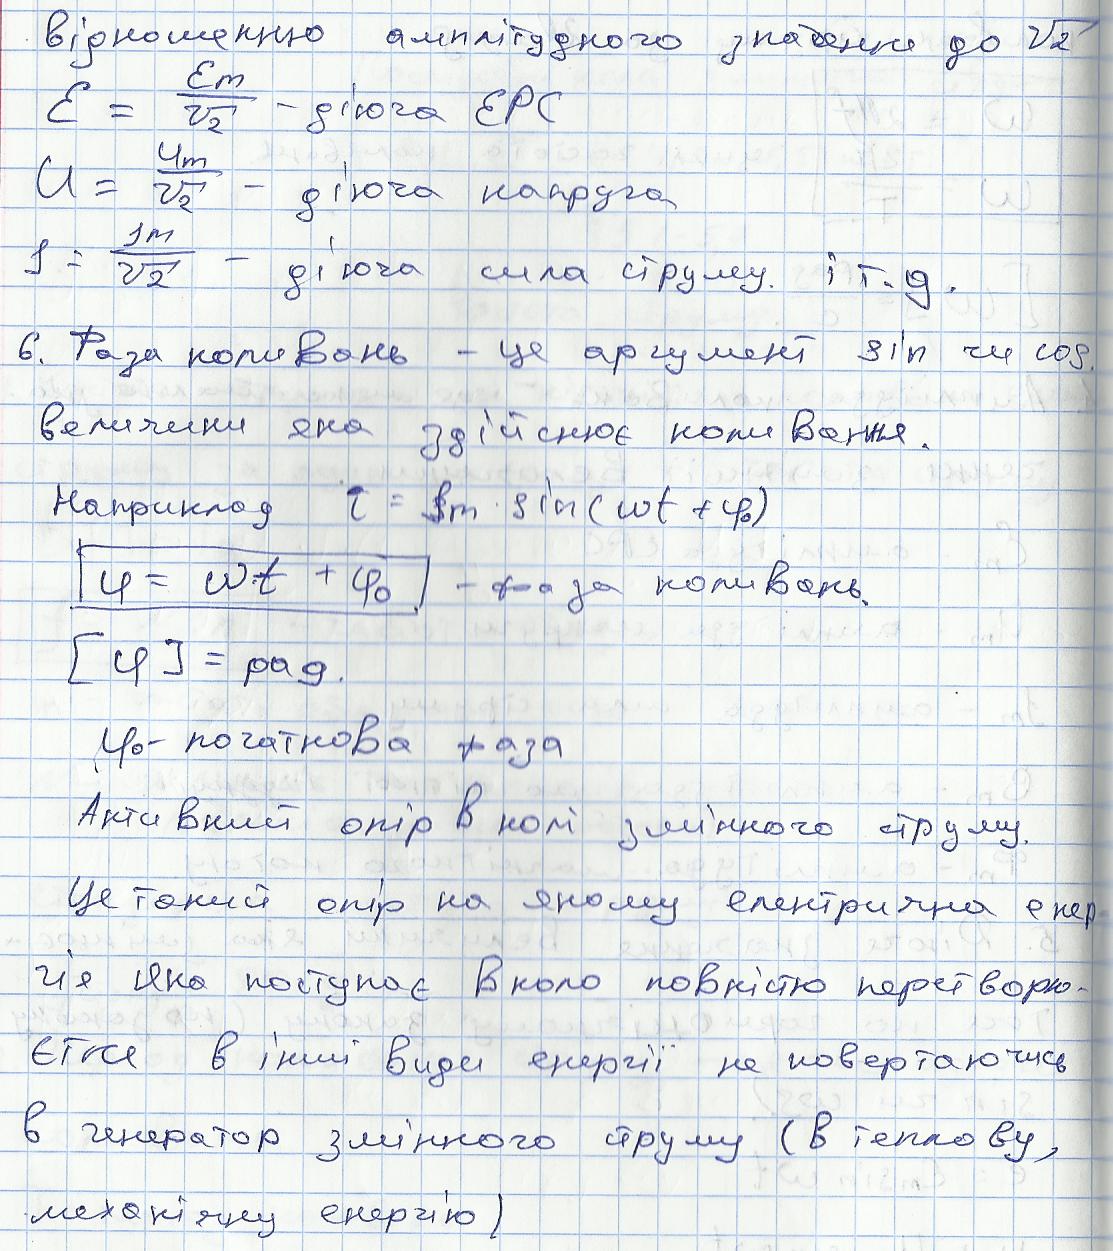 відношенню амплітудного значення до √2
Ɛ = Ɛm/√2 – діюча ЕРС
U = Um/√2 – діюча напруга
I = Im/√2 – діюча сила струму. і т.д.
6. Фаза коливань – це аргумент sin чи cos.
величини яка здійснює коливання.
Наприклад i = Im · sin(ωt + φ₀)
φ = ω·t + φ₀ – фаза коливань.
[φ] = рад.
φ₀ – початкова фаза
Активний опір в колі змінного струму.
Це такий опір на якому електрична енер-
гія яка поступає в коло повністю перетворю-
ється в інші види енергії не повертаючись
в генератор змінного струму (в теплову,
механічну енергію)